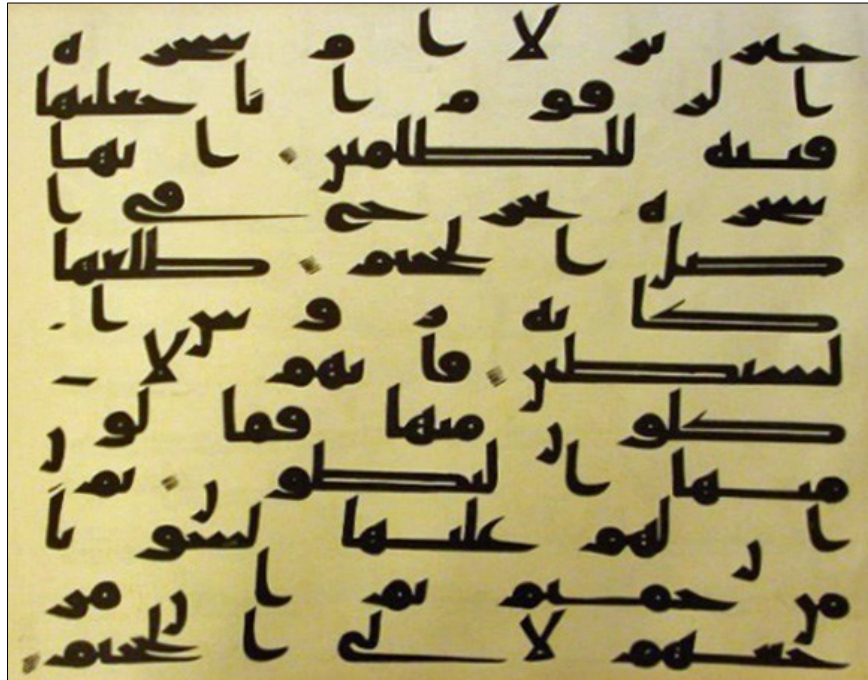 خير نزلا ام شجره
الزقوم انا جعلنها
فتنه للظلمين انها
شجره تخرج في ا
صل الجحيم طلعها
كانه روس ا
لشيطين فانهم لا
كلون منها فمالون
منها البطون ثم
ان لهم عليها لشوبا
من حميم ثم ان مر
جعهم لالى الجحيم